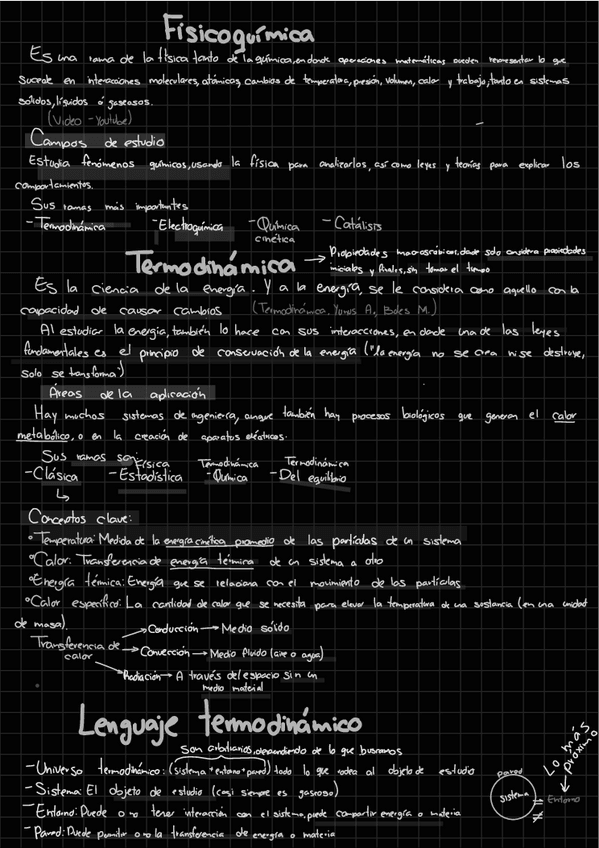 Fisicoquímica
Es una rama de la física tanto de la química, en donde operaciones matemáticas pueden representar lo que
sucede en interacciones moleculares, atómicas, cambios de temperatura, presión, volumen, calor y trabajo, tanto en sistemas
sólidos, líquidos ó gaseosos.
(Video - Youtube)
Campos de estudio
Estudia fenómenos químicos, usando la física para analizarlos, así como leyes y teorías para explicar los
comportamientos.
Sus ramas más importantes
- Termodinámica - Electroquímica - Química cinética - Catálisis
Termodinámica → Propiedades macroscópicas, donde solo considera propiedades
iniciales y finales, sin tomar el tiempo
Es la ciencia de la energía. Y a la energía, se le considera como aquello con la
capacidad de causar cambios (Termodinámica, Yunus A., Boles M.)
Al estudiar la energía, también lo hace con sus interacciones, en donde una de las leyes
fundamentales es el principio de conservación de la energía ("la energía no se crea ni se destruye,
solo se transforma")
Áreas de la aplicación
Hay muchos sistemas de ingeniería, aunque también hay procesos biológicos que generan el calor
metabólico, o en la creación de aparatos eléctricos.
Sus ramas son:
- Clásica - Física Estadística - Termodinámica Química - Termodinámica Del equilibrio
Conceptos clave:
°Temperatura: Medida de la energía cinética promedio de las partículas de un sistema
°Calor: Transferencia de energía térmica de un sistema a otro
°Energía térmica: Energía que se relaciona con el movimiento de las partículas
°Calor específico: La cantidad de calor que se necesita para elevar la temperatura de una sustancia (en una unidad
de masa).
Transferencia de calor
→ Conducción → Medio sólido
→ Convección → Medio fluido (aire o agua)
→ Radiación → A través del espacio sin un
medio material
Lenguaje termodinámico
Son arbitrarios, dependiendo de lo que buscamos
- Universo termodinámico: (sistema + entorno + pared) todo lo que rodea al objeto de estudio
- Sistema: El objeto de estudio (casi siempre es gaseoso)
- Entorno: Puede o no tener interacción con el sistema, puede compartir energía o materia
- Pared: Puede permitir o no la transferencia de energía o materia
pared
sistema
Entorno
Lo más
próximo